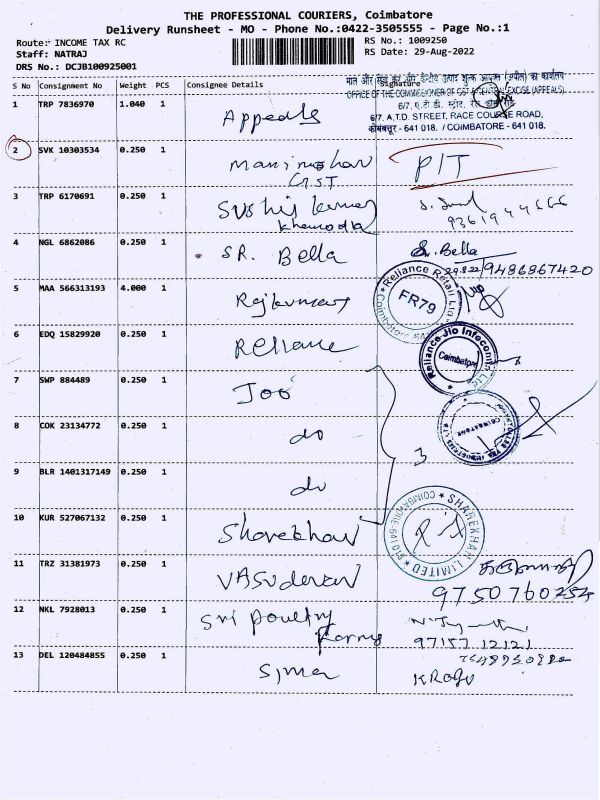 THE PROFESSIONAL COURIERS, Coimbatore
Delivery Runsheet - MO - Phone No.:0422-3505555 - Page No.:1
Route: INCOME TAX RC
RS No.: 1009250
Staff: NATRAJ
RS Date: 29-Aug-2022
DRS No.: DCJB100925001
S No Consignment No Weight PCS Consignee Details Signature
OFFICE OF THE COMMISSIONER OF GST & CENTRAL EXCISE (APPEALS)
6/7, ए.टी.डी. स्ट्रीट, रेस कोर्स रोड,
6/7, A.T.D. STREET, RACE COURSE ROAD,
कोयंबत्तूर - 641 018. / COIMBATORE - 641 018.
1 TRP 7836970 1.040 1 Appeals
2 SVK 10303534 0.250 1 Manimohan P/T
3 TRP 6170691 0.250 1 Sushil kumar
4 NGL 6862086 0.250 1 SR. Bella Sr. Bella
29.8.22 / 9486867420
5 MAA 566313193 4.000 1 Rajkumar
Reliance Retail Ltd.
FR79
6 EDQ 15829920 0.250 1 Reliance
Reliance Jio Infocomm
Coimbatore
7 SWP 884489 0.250 1
8 COK 23134772 0.250 1 do
3
9 BLR 1401317149 0.250 1 do
10 KUR 527067132 0.250 1 Sharekhan
SHAREKHAN LIMITED
COIMBATORE-641 018
11 TRZ 31381973 0.250 1 VASUdevan
12 NKL 7928013 0.250 1 Sri poultry
Farms
97157 12121
13 DEL 120484855 0.250 1